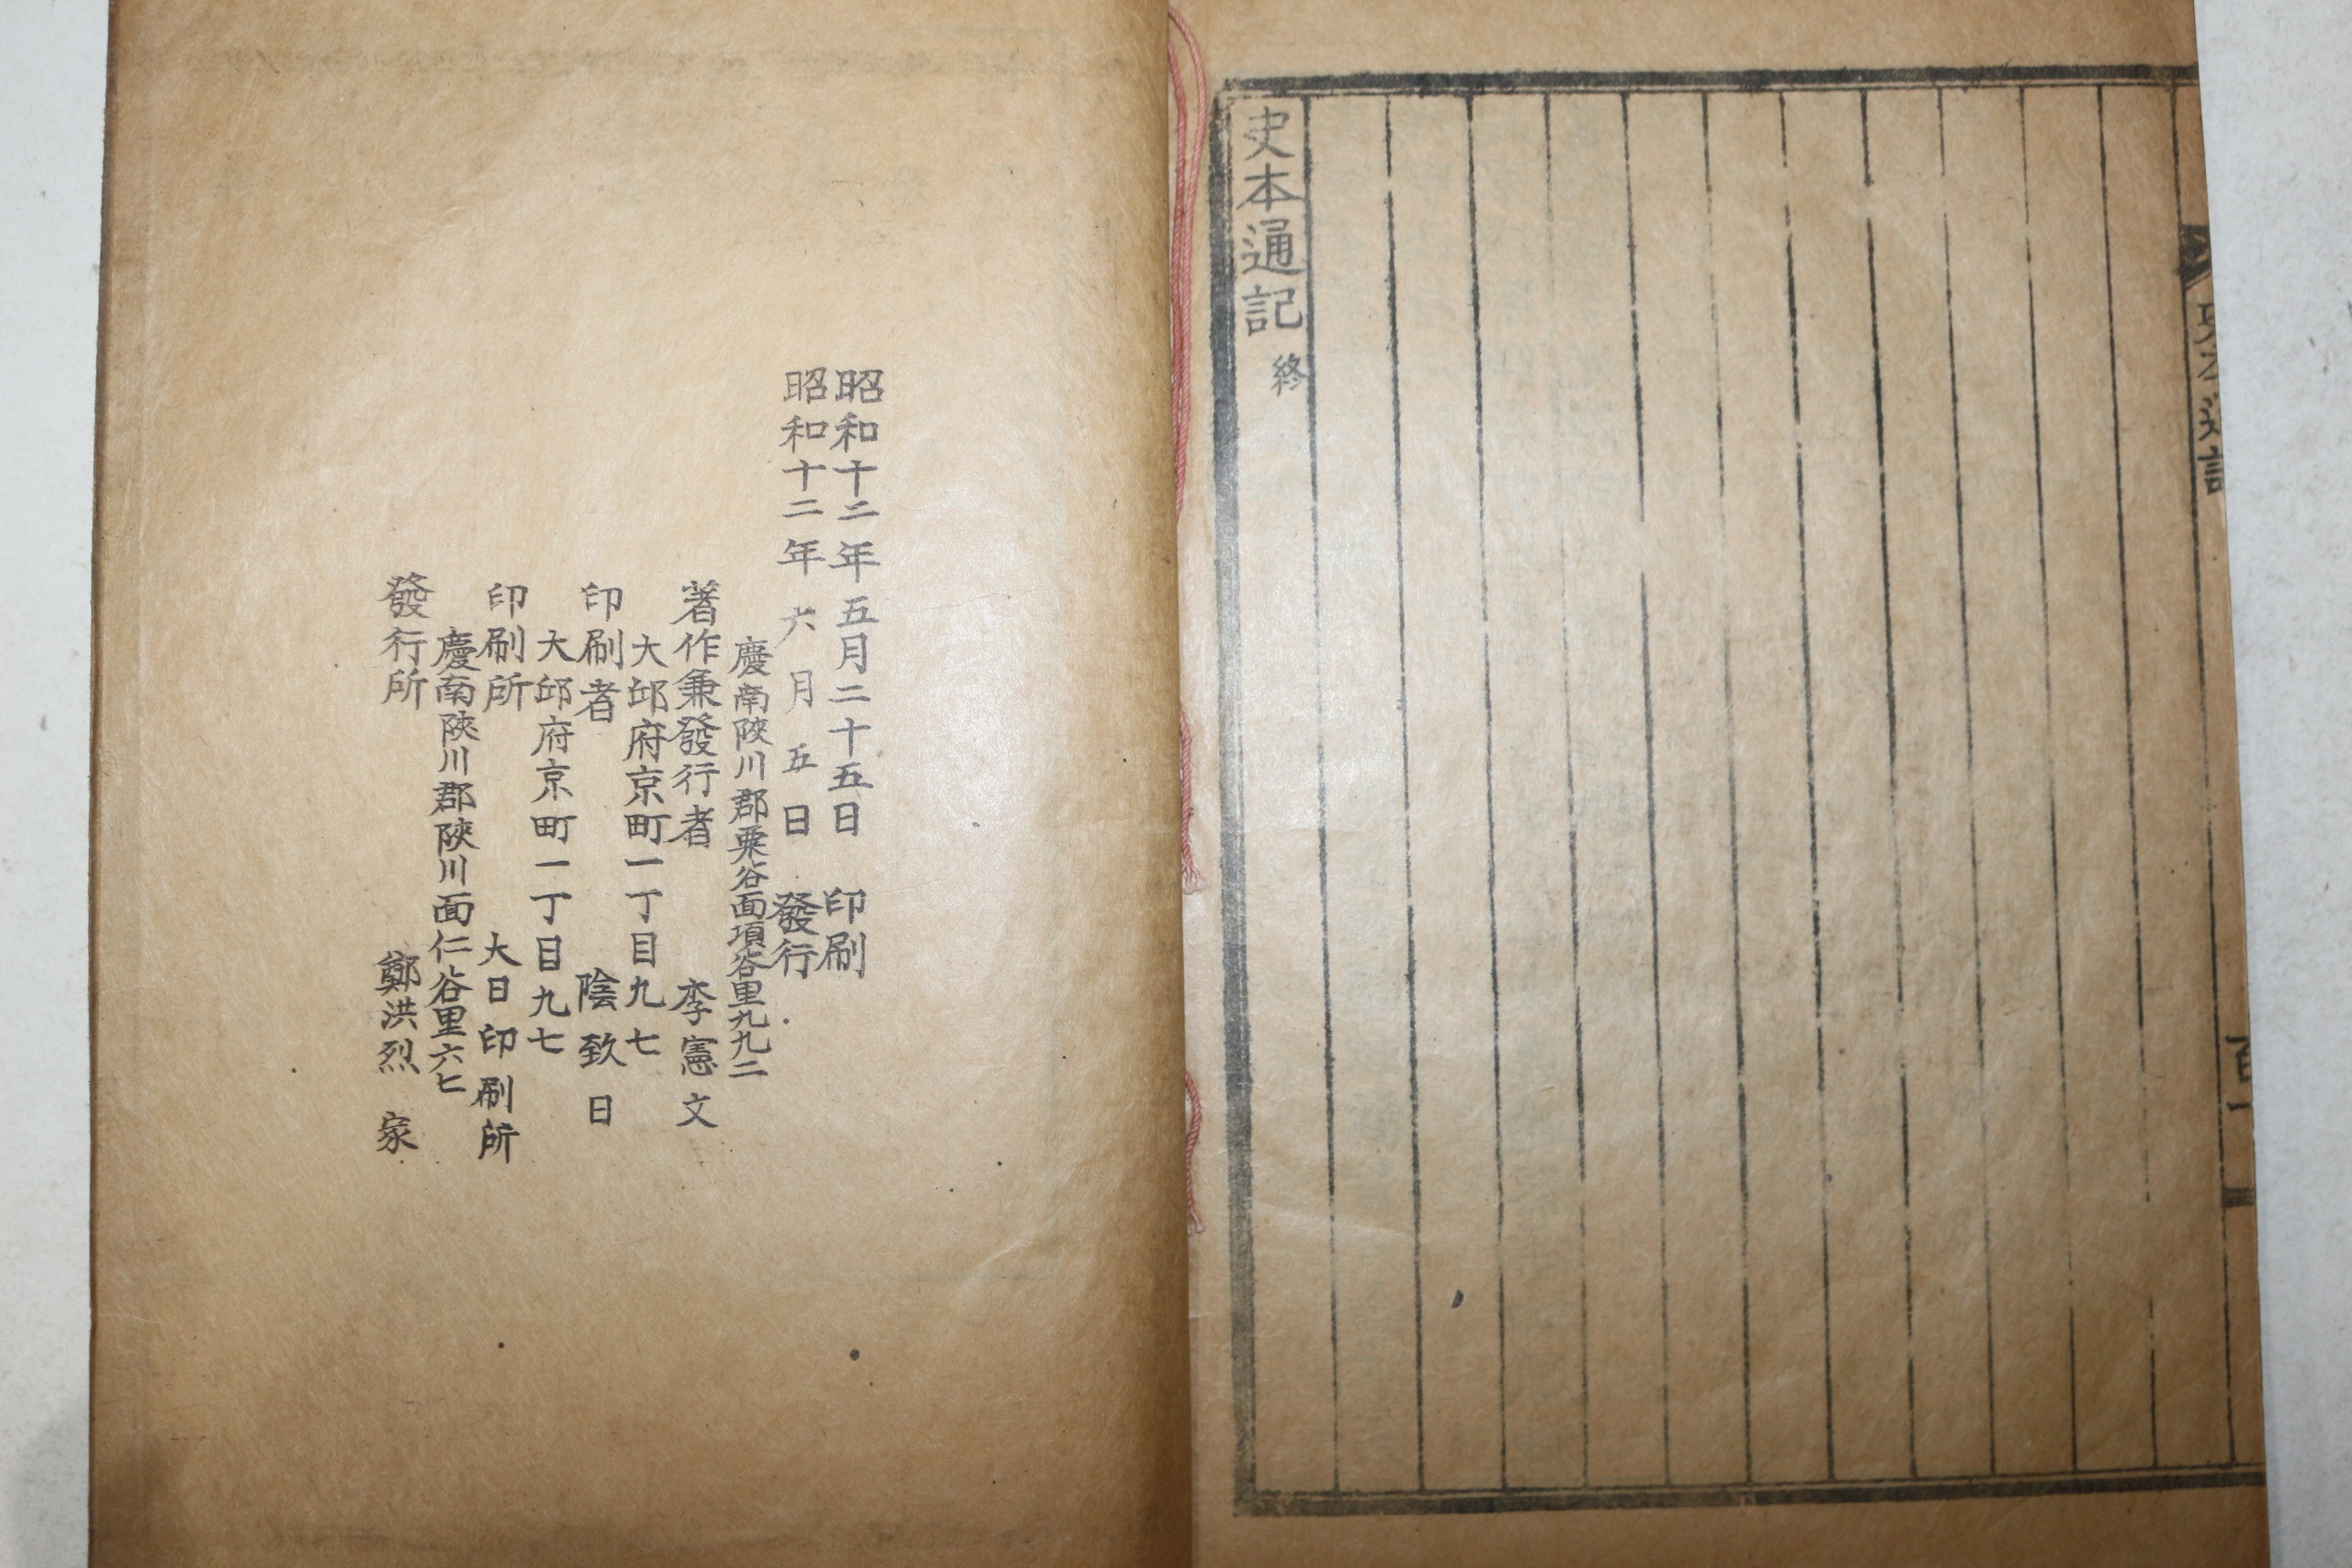 史本通記
百一
史本通記 終
昭和十二年五月二十五日 印刷
昭和十二年六月五日 發行
慶南陜川郡栗谷面項谷里九九二
著作兼發行者 李憲文
大邱府京町一丁目九七
印刷者 陰致日
大邱府京町一丁目九七
印刷所 大日印刷所
慶南陜川郡陜川面仁谷里六七
發行所 鄭洪烈家